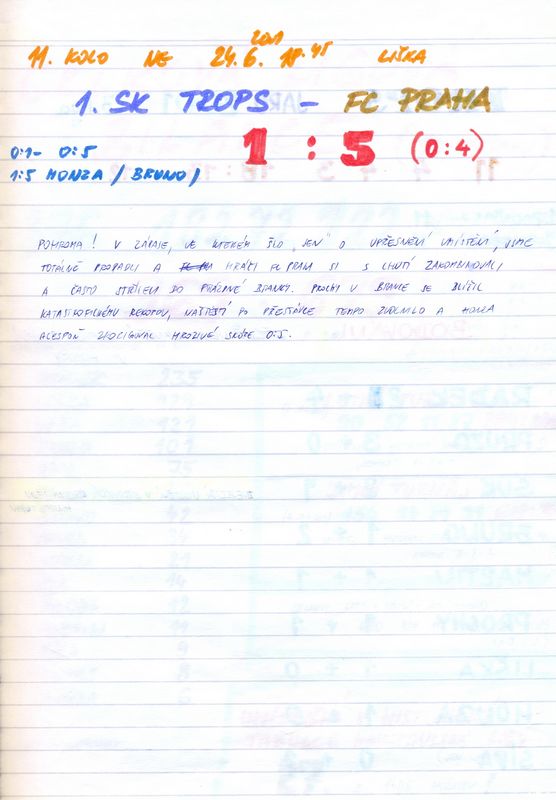 2001
11. KOLO NE 24.6. 17.45 LIŠKA
1. SK TROPS – FC PRAHA
1 : 5 (0:4)
0:1- 0:5
1:5 HONZA / BRUNO /
POHROMA! V ZÁPASE, VE KTERÉM ŠLO „JEN" O UPŘESNĚNÍ UMÍSTĚNÍ, JSME
TOTÁLNĚ PROPADLI A HRÁČI FC PRAHA SI S CHUTÍ ZAKOMBINOVALI
A ČASTO STŘÍLELI DO PRÁZDNÉ BRANKY. PROCHY V BRANCE SE BLÍŽIL
KATASTROFICKÉMU REKORDU, NAŠTĚSTÍ PO PŘESTÁVCE TEMPO ZVOLNILO A HONZA
ALESPOŇ ZKORIGOVAL HROZIVÉ SKÓRE 0:5.